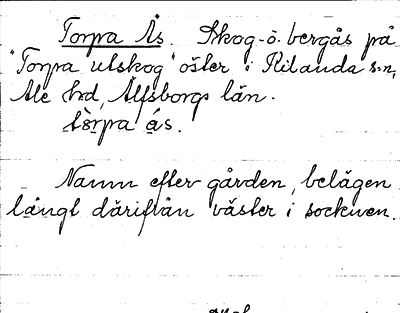 Torpa Ås. Skog- o. bergås på
"Torpa utskog" öster i Kilanda s:n,
Ale hrd, Älfsborgs län.
tòrpa ás.
Namn efter gården, belägen
långt därifrån väster i socknen.